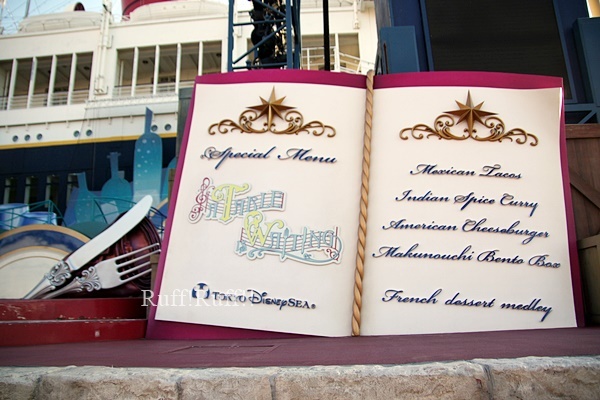 Special Menu
A TABLE
IS WAITING
TOKYO DISNEYSEA®
Mexican Tacos
Indian Spice Curry
American Cheeseburger
Makunouchi Bento Box
French dessert medley
Ruff!Ruff!!